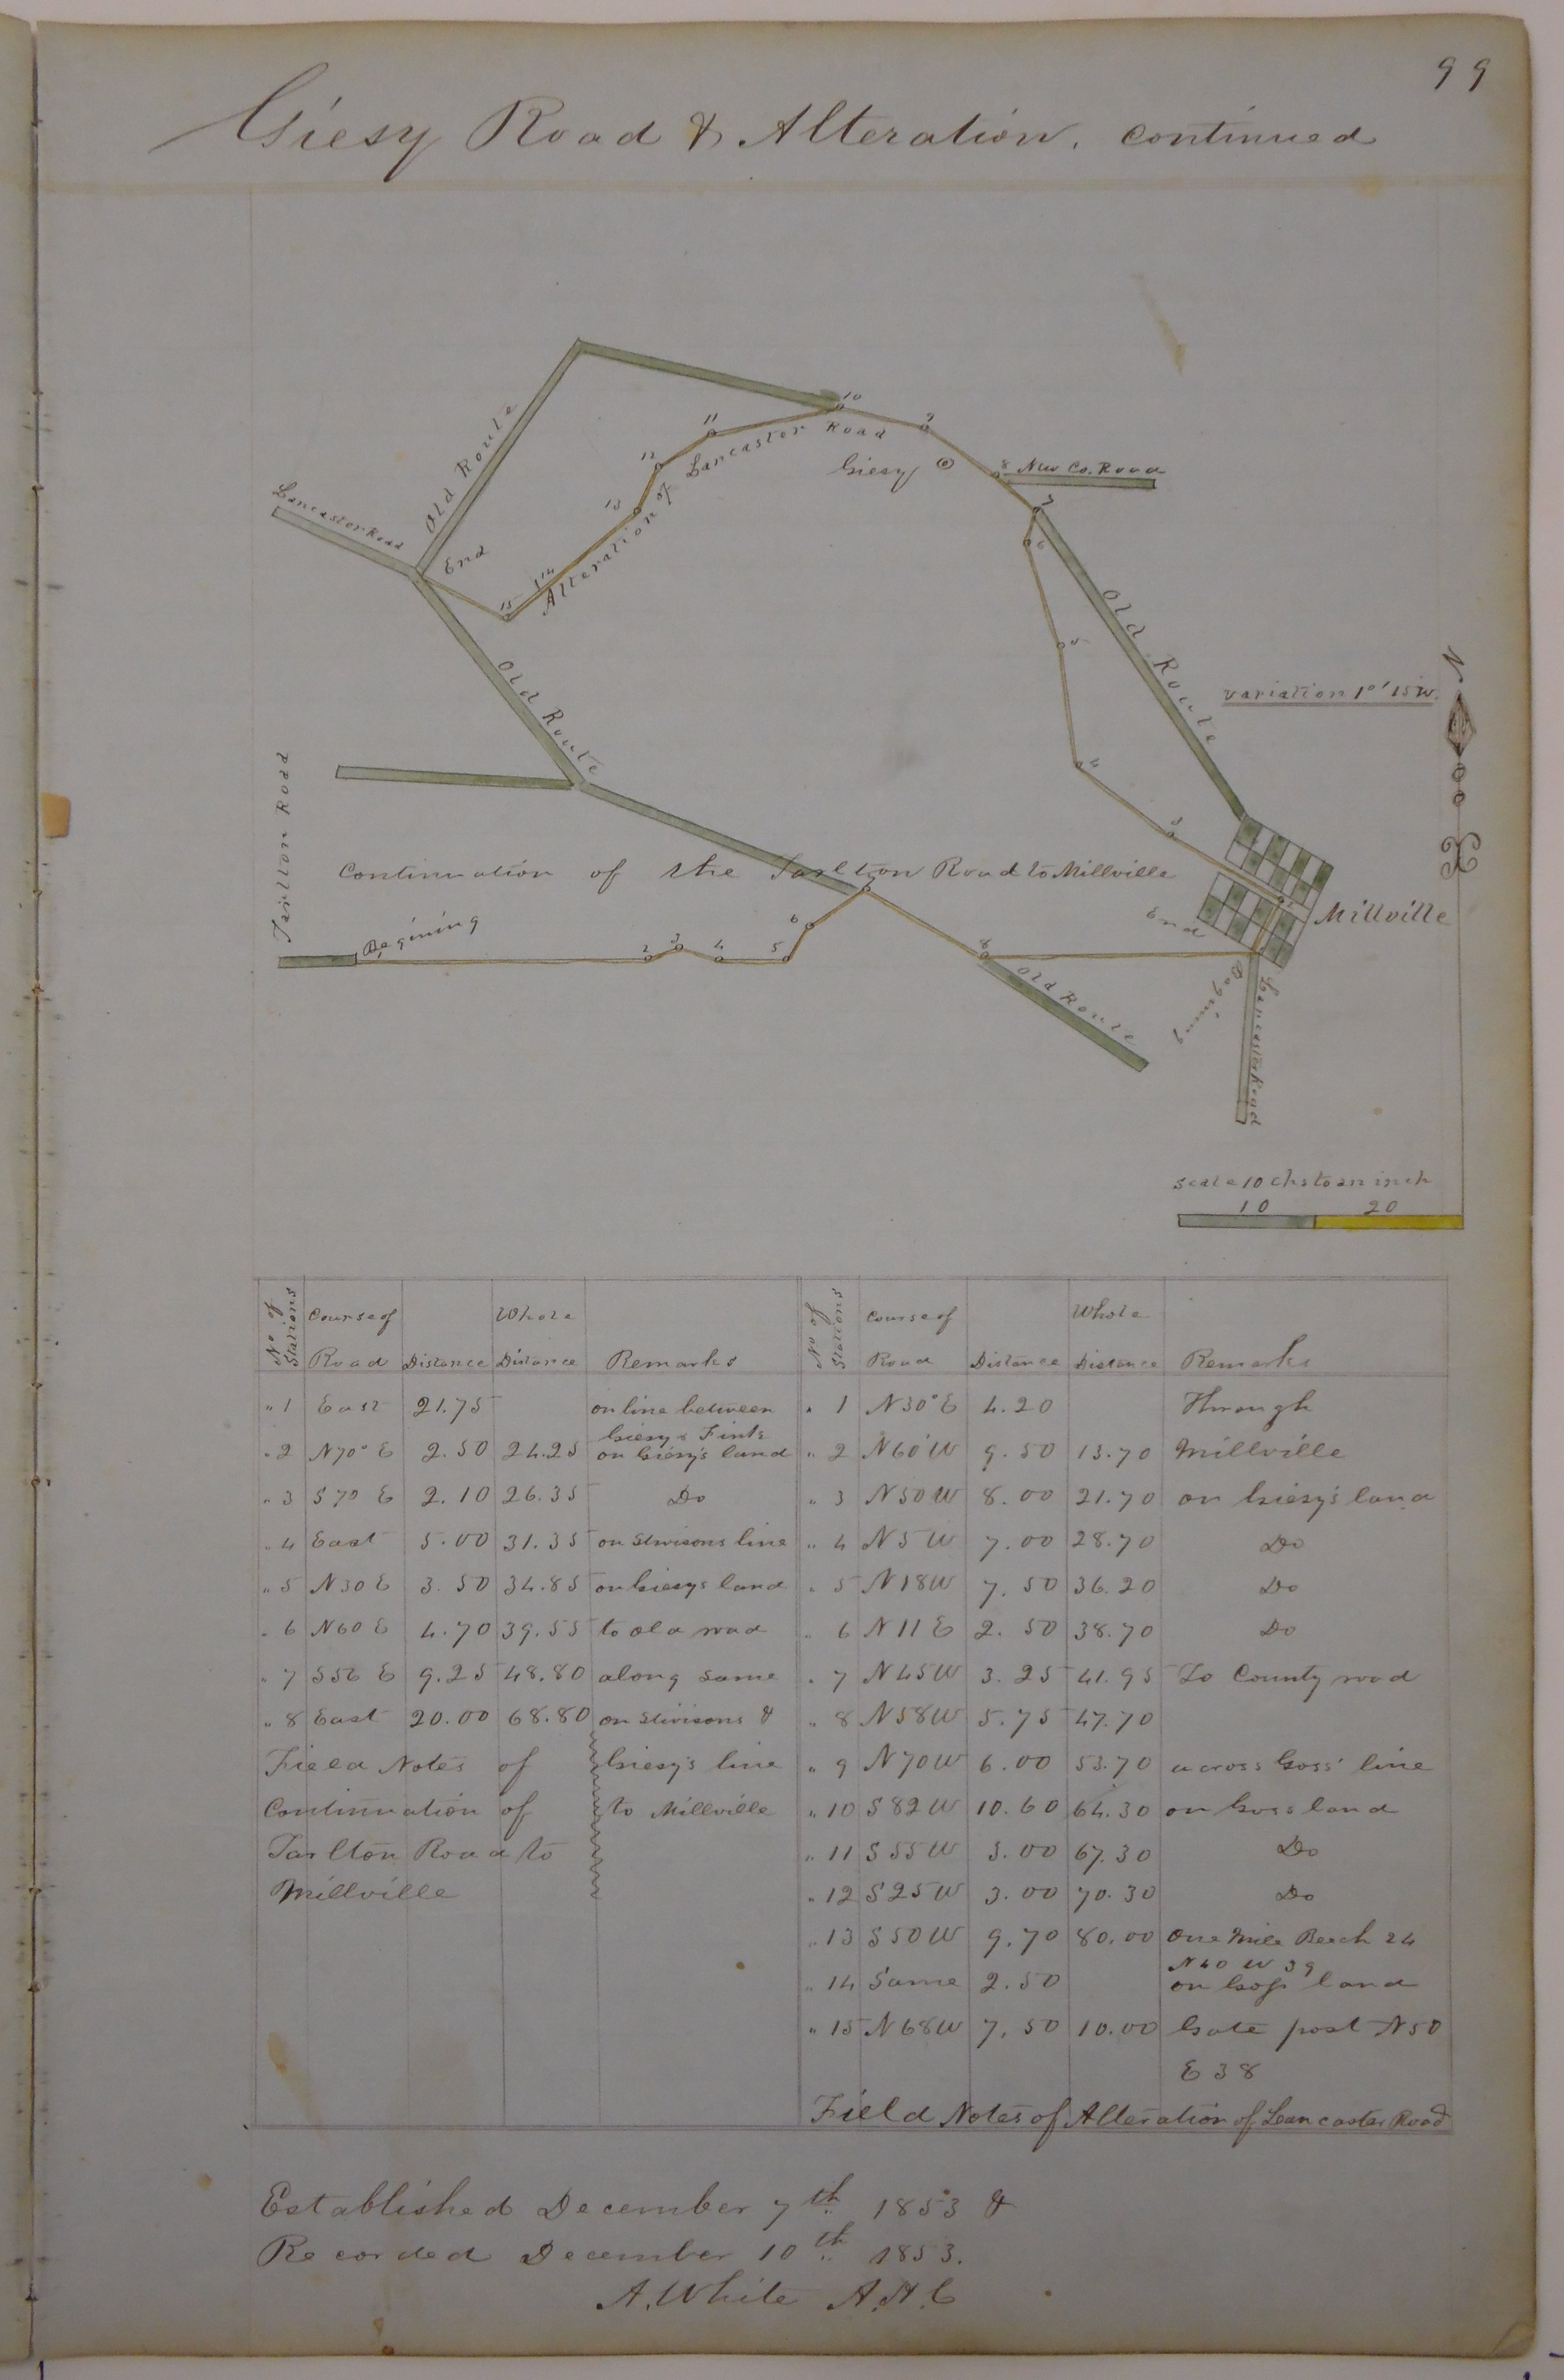 99
Giesy Road & Alteration, continued
Old Route
Lancaster Road
End
Alteration of Lancaster Road
15
14
13
12
11
10
9
Giesy
8 New Co. Road
7
6
5
4
3
Old Route
variation 1°'15 W.
N
Old Route
Tarlton Road
Continuation of the Tarlton Road to Millville
Begining
2
3
4
5
6
7
8
Old Route
End
Millville
Begining
Lancaster Road
scale 10 chs to an inch
10 20
No of Stations Course of Road Distance Whole Distance Remarks
" 1 East 21.75 on line between Giesy & Fink
" 2 N70° E 2.50 24.25 on Giesy's land
" 3 S70 E 2.10 26.35 Do
" 4 East 5.00 31.35 on Stivisons line
" 5 N30 E 3.50 34.85 on Giesys land
" 6 N60 E 4.70 39.55 to old road
" 7 S56 E 9.25 48.80 along same
" 8 East 20.00 68.80 on Stivisons &
Giesy's line
to Millville
Field Notes of
Continuation of
Tarlton Road to
Millville
No of Stations Course of Road Distance Whole Distance Remarks
" 1 N30° E 4.20 Through
" 2 N60 W 9.50 13.70 Millville
" 3 N50 W 8.00 21.70 on Giesy's land
" 4 N5 W 7.00 28.70 Do
" 5 N18 W 7.50 36.20 Do
" 6 N11 E 2.50 38.70 Do
" 7 N45 W 3.25 41.95 To County road
" 8 N58 W 5.75 47.70
" 9 N70 W 6.00 53.70 across Goss' line
" 10 S82 W 10.60 64.30 on Goss land
" 11 S55 W 3.00 67.30 Do
" 12 S25 W 3.00 70.30 Do
" 13 S50 W 9.70 80.00 One Mile Beech 24
N40 W 39
" 14 Same 2.50 on Goss land
" 15 N68 W 7.50 10.00 Gate post N50
E 38
Field Notes of Alteration of Lancaster Road
Established December 7th 1853 &
Recorded December 10th 1853.
A. White A.A.C